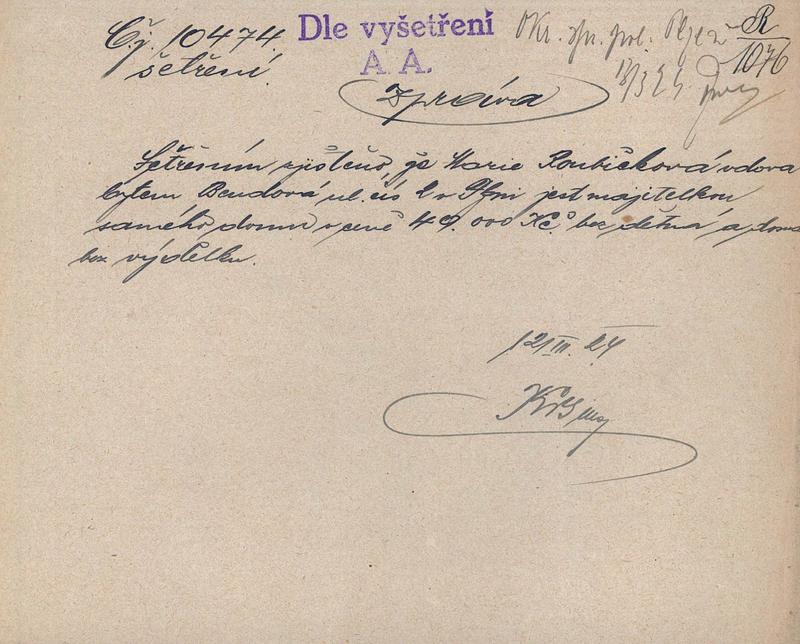 Č.j. 10474.
šetření.
Dle vyšetření
A. A.
Okr. spr. pol. Plzeň
18/3 24
R
1076
Zpráva
Šetřením zjištěno, že Marie Roubíčková vdova
bytem Bendová ul. čís 2 v Plzni jest majitelkou
samého domu v ceně 40.000 Kč. bez dětná, a doma
bez výdělku.
12/III. 24